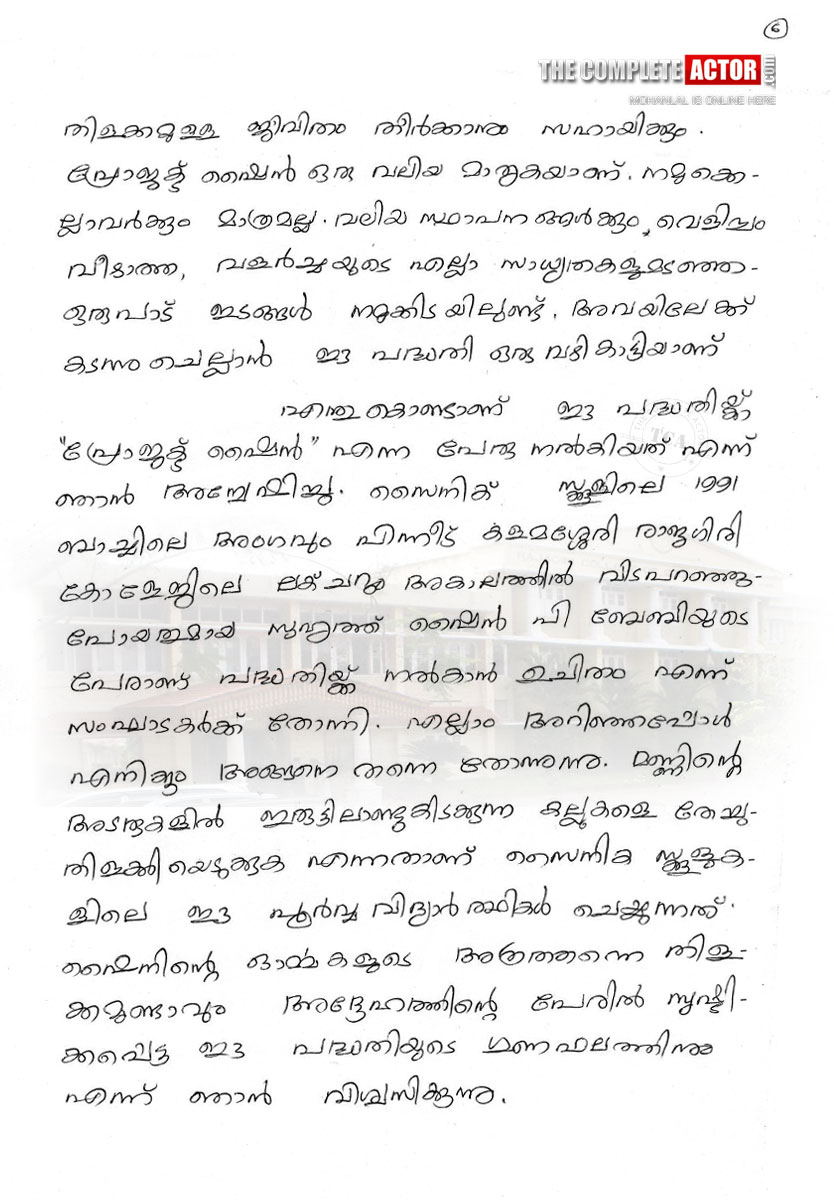 6
THE COMPLETE ACTOR .COM
MOHANLAL IS ONLINE HERE
തിളക്കമുള്ള ജീവിതം തീർക്കാനും സഹായിക്കും.
പ്രോജക്ട് ഷൈൻ ഒരു വലിയ മാതൃകയാണ്. നമുക്കെ-
ല്ലാവർക്കും മാത്രമല്ല. വലിയ സ്ഥാപനങ്ങൾക്കും, വെളിച്ചം
വീഴാത്ത, വളർച്ചയുടെ എല്ലാ സാധ്യതകളുമടഞ്ഞ-
ഒരുപാട് ഇടങ്ങൾ നമുക്കിടയിലുണ്ട്. അവയിലേക്ക്
കടന്നു ചെല്ലാൻ ഈ പദ്ധതി ഒരു വഴികാട്ടിയാണ്
എന്തുകൊണ്ടാണ് ഈ പദ്ധതിയ്ക്ക്
"പ്രോജക്ട് ഷൈൻ" എന്ന പേരു നൽകിയത് എന്ന്
ഞാൻ അന്വേഷിച്ചു. സൈനിക് സ്കൂളിലെ 1991
ബാച്ചിലെ അംഗവും പിന്നീട് കളമശ്ശേരി രാജഗിരി
കോളേജിലെ ലക്ചററും അകാലത്തിൽ വിടപറഞ്ഞു-
പോയതുമായ സുഹൃത്ത് ഷൈൻ പി ബേബിയുടെ
പേരാണ് പദ്ധതിയ്ക്ക് നൽകാൻ ഉചിതം എന്ന്
സംഘാടകർക്ക് തോന്നി. എല്ലാം അറിഞ്ഞപ്പോൾ
എനിക്കും അങ്ങനെ തന്നെ തോന്നുന്നു. മണ്ണിന്റെ
അടരുകളിൽ ഇരുട്ടിലാണ്ടുകിടക്കുന്ന കല്ലുകളെ തേച്ചു-
തിളക്കിയെടുക്കുക എന്നതാണ് സൈനിക സ്കൂളുക-
ളിലെ ഈ പൂർവ്വ വിദ്യാർത്ഥികൾ ചെയ്യുന്നത്.
ഷൈനിന്റെ ഓർമ്മകളുടെ അത്രതന്നെ തിള-
ക്കമുണ്ടാവും അദ്ദേഹത്തിന്റെ പേരിൽ സൃഷ്ടി-
ക്കപ്പെട്ട ഈ പദ്ധതിയുടെ ഗുണഫലത്തിനും
എന്ന് ഞാൻ വിശ്വസിക്കുന്നു.